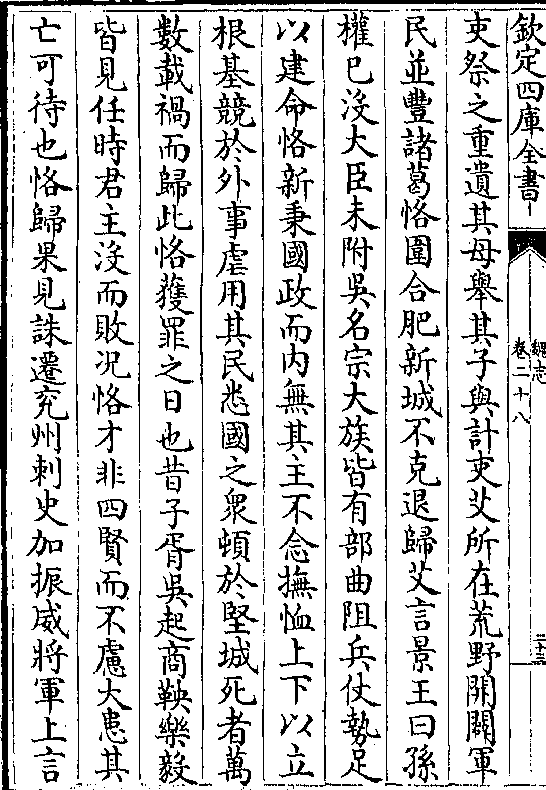 欽定四庫全書
魏志
卷二十八
二十三
吏祭之重遺其母舉其子與計吏艾所在荒野開闢軍
民並豐諸葛恪圍合肥新城不克退歸艾言景王曰孫
權已没大臣未附吳名宗大族皆有部曲阻兵仗勢足
以建命恪新秉國政而内無其主不念撫恤上下以立
根基競於外事虐用其民悉國之衆頓於堅城死者萬
數載禍而歸此恪獲罪之日也昔子胥吳起商鞅樂毅
皆見任時君主没而敗況恪才非四賢而不慮大患其
亡可待也恪歸果見誅遷兖州刺史加振威將軍上言